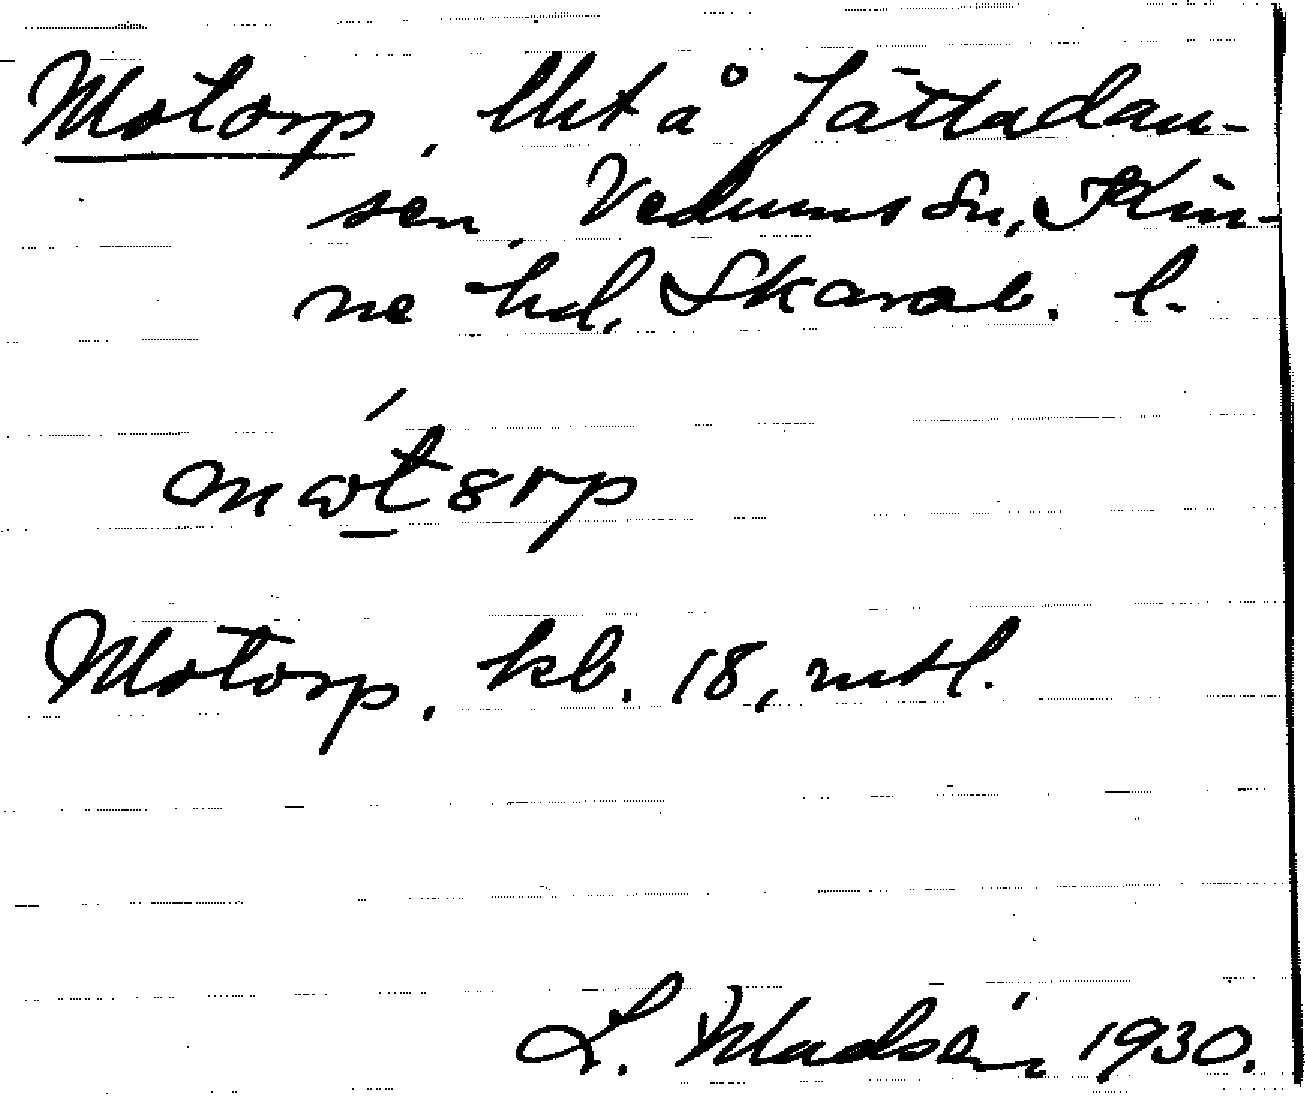 Motorp, Uht å Jättadan-
sen, Vedums sn, Kin-
ne hd, Skarab. l.
mωt8rp
Motorp, kb. 18, mtl.
L. Madsén 1930.